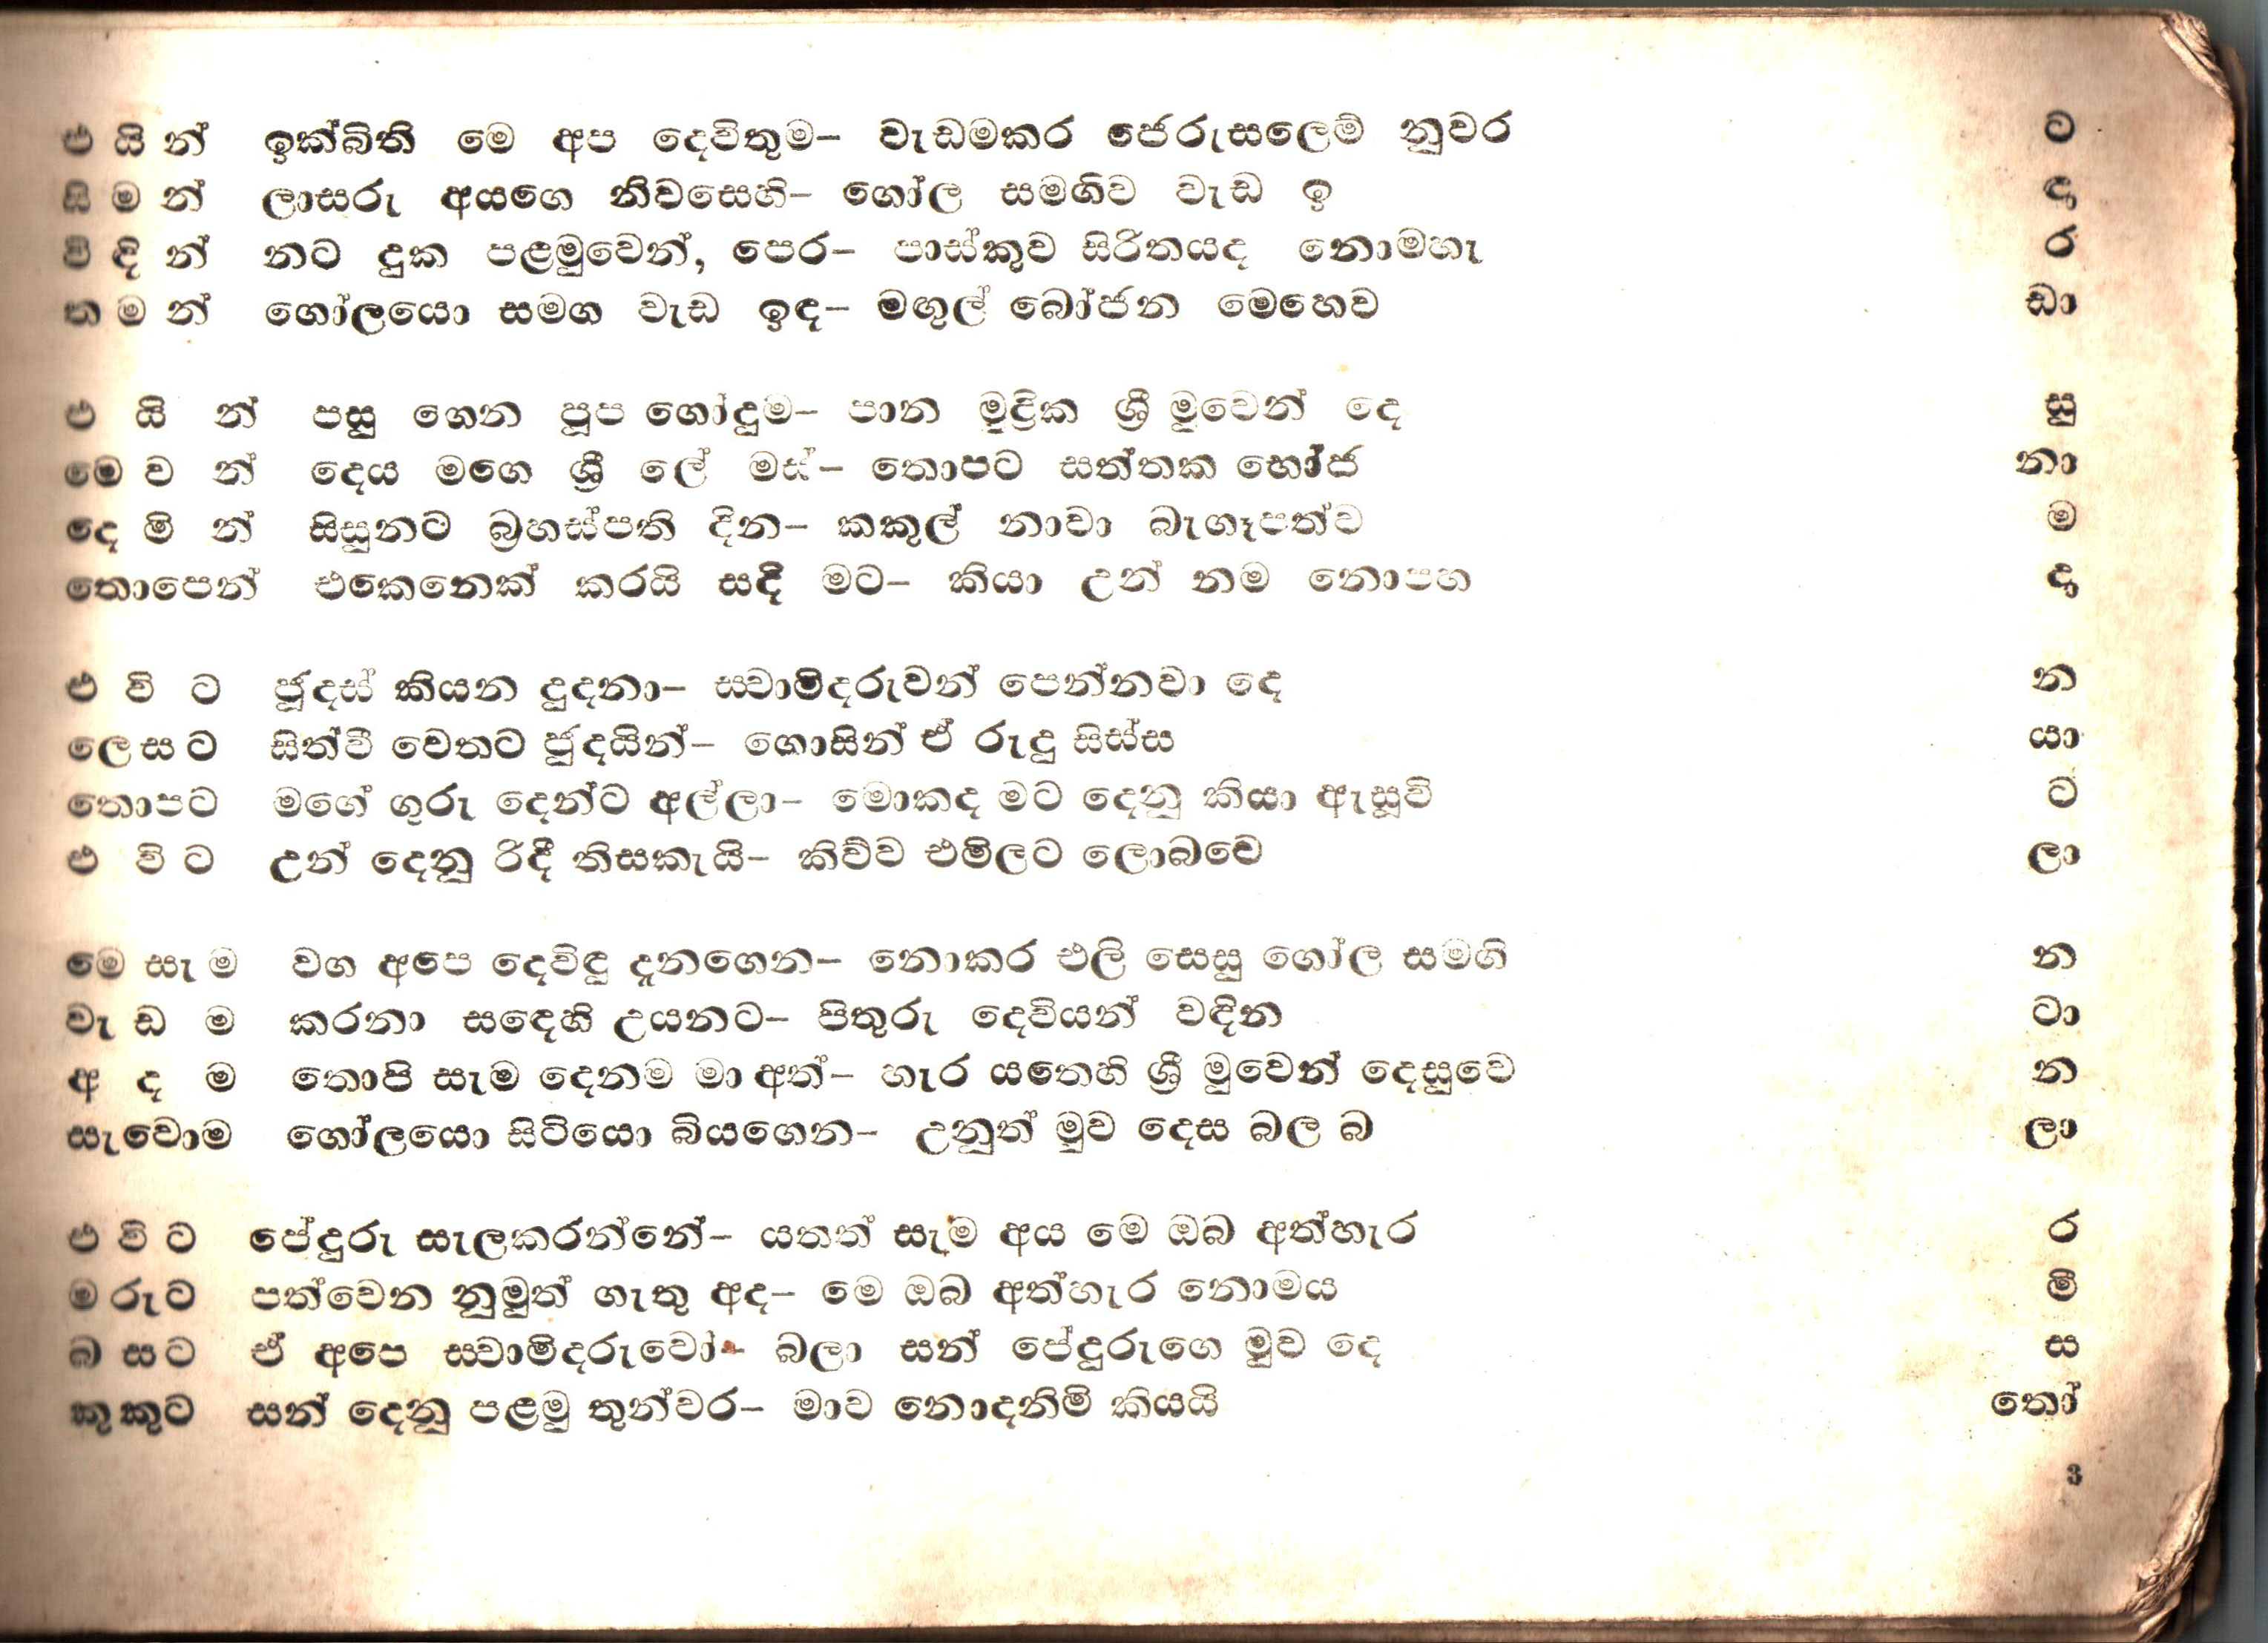 එ යි න් ඉක්බිති මෙ අප දෙවිතුම- වැඩමකර ජෙරුසලෙම් නුවර ට
සි ම න් ලාසරු අයගෙ නිවසෙහි- ගෝල සමගිව වැඩ ඉ ඳු
වි ඳි න් නට දුක පළමුවෙන්, පෙර- පාස්කුව සිරිතයද නොමහැ ර
ත ම න් ගෝලයො සමග වැඩ ඉඳ- මඟුල් බෝජන මෙහෙව ඩා
එ යි න් පසු ගෙන පූප ගෝදුම- පාන මුද්‍රික ශ්‍රී මුවෙන් දෙ සු
මෙ ව න් දෙය මගෙ ශ්‍රී ලේ මස්- තොපට සත්තක භෝජ නා
දෙ මි න් සිසුනට බ්‍රහස්පති දින- කකුල් නාවා බැගෑපත්ව ම
තොපෙන් එකෙනෙක් කරයි සදි මට- කියා උන් නම නොපහ ද
එ වි ට ජූදස් කියන දුදනා- ස්වාමිදරුවන් පෙන්නවා දෙ න
ලෙ ස ට සිත්වී වෙතට ජුදයින්- ගොසින් ඒ රුදු සිස්ස යා
තොපට මගේ ගුරු දෙන්ට අල්ලා- මොකද මට දෙනු කියා ඇසූවි ට
එ වි ට උන් දෙනු රිදී තිසකැයි- කිව්ව එමිලට ලොබවෙ ලා
මෙ සැ ම වග අපෙ දෙවිඳු දැනගෙන- නොකර එලි සෙසු ගෝල සමගි න
වැ ඩ ම කරනා සඳෙහි උයනට- පිතුරු දෙවියන් වඳින ටා
අ ද ම තොපි සැම දෙනම මා අත්- හැර යතෙහි ශ්‍රී මුවෙන් දෙසුවෙ න
සැවොම ගෝලයො සිටියො බියගෙන- උනුත් මුව දෙස බල බ ලා
එ වි ට පේදුරු සැලකරන්නේ- යතත් සැම අය මෙ ඔබ අත්හැර ර
ම රු ට පත්වෙන නුමුත් ගැතු අද- මෙ ඔබ අත්හැර නොමය මි
බ ස ට ඒ අපෙ ස්වාමිදරුවෝ- බලා සන් පේදුරුගෙ මුව දෙ ස
කුකුට සන් දෙනු පළමු තුන්වර- මාව නොදනිමි කියයි තෝ
3